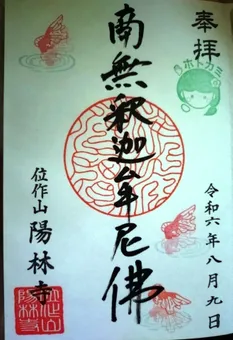 奉拝
ホトカミ
南無釈迦牟尼佛
令和六年八月九日
位作山
陽林寺